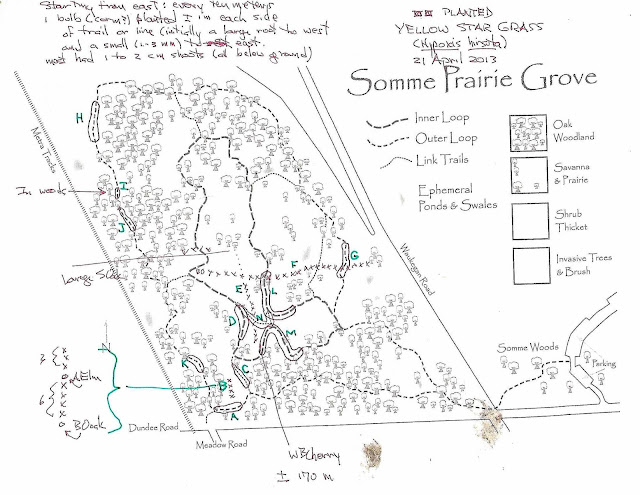 Starting from east: every ten meters
1 bulb (corm?) planted 1 m each side
of trail or line (initially a large root to west
and a small (1-3 mm) to east.
most had 1 to 2 cm shoots (all below ground)
PLANTED
YELLOW STAR GRASS
(Hypoxis hirsuta)
21 April 2013
Somme Prairie Grove
Inner Loop
Outer Loop
Link Trails
Ephemeral
Ponds & Swales
Oak
Woodland
Savanna
& Prairie
Shrub
Thicket
Invasive Trees
& Brush
Metra Tracks
Waukegan Road
H
In woods
I
J
G
F
E
L
D
N
M
K
C
B
A
N
3
A Elm
6
B Oak
Dundee Road
Meadow Road
WB Cherry
± 170 m
Somme Woods
Parking